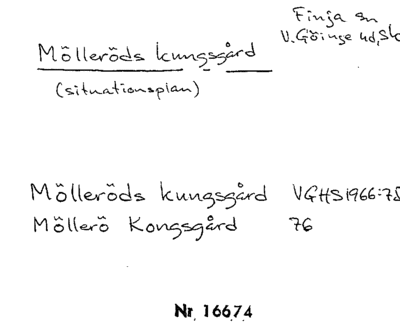 Finja sn
V. Göinge hd, Sk
Mölleröds kungsgård
(situationsplan)
Mölleröds kungsgård VGHS 1966:75
Möllerö Kongsgård 76
Nr 16674